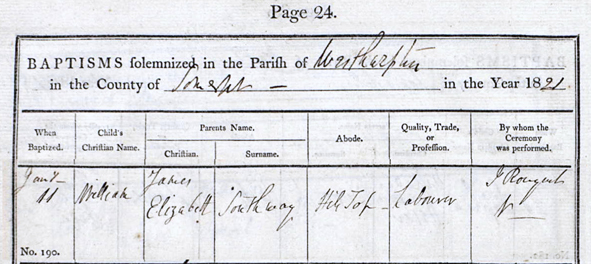 Page 24.
BAPTISMS solemnized in the Parish of Westharptree
in the County of Somerset — in the Year 1821
When Baptized. Child's Christian Name. Parents Name. Christian. Surname. Abode. Quality, Trade, or Profession. By whom the Ceremony was performed.
Jany 11 William James Elizabeth Southway Hill Top Labourer J
No. 190.